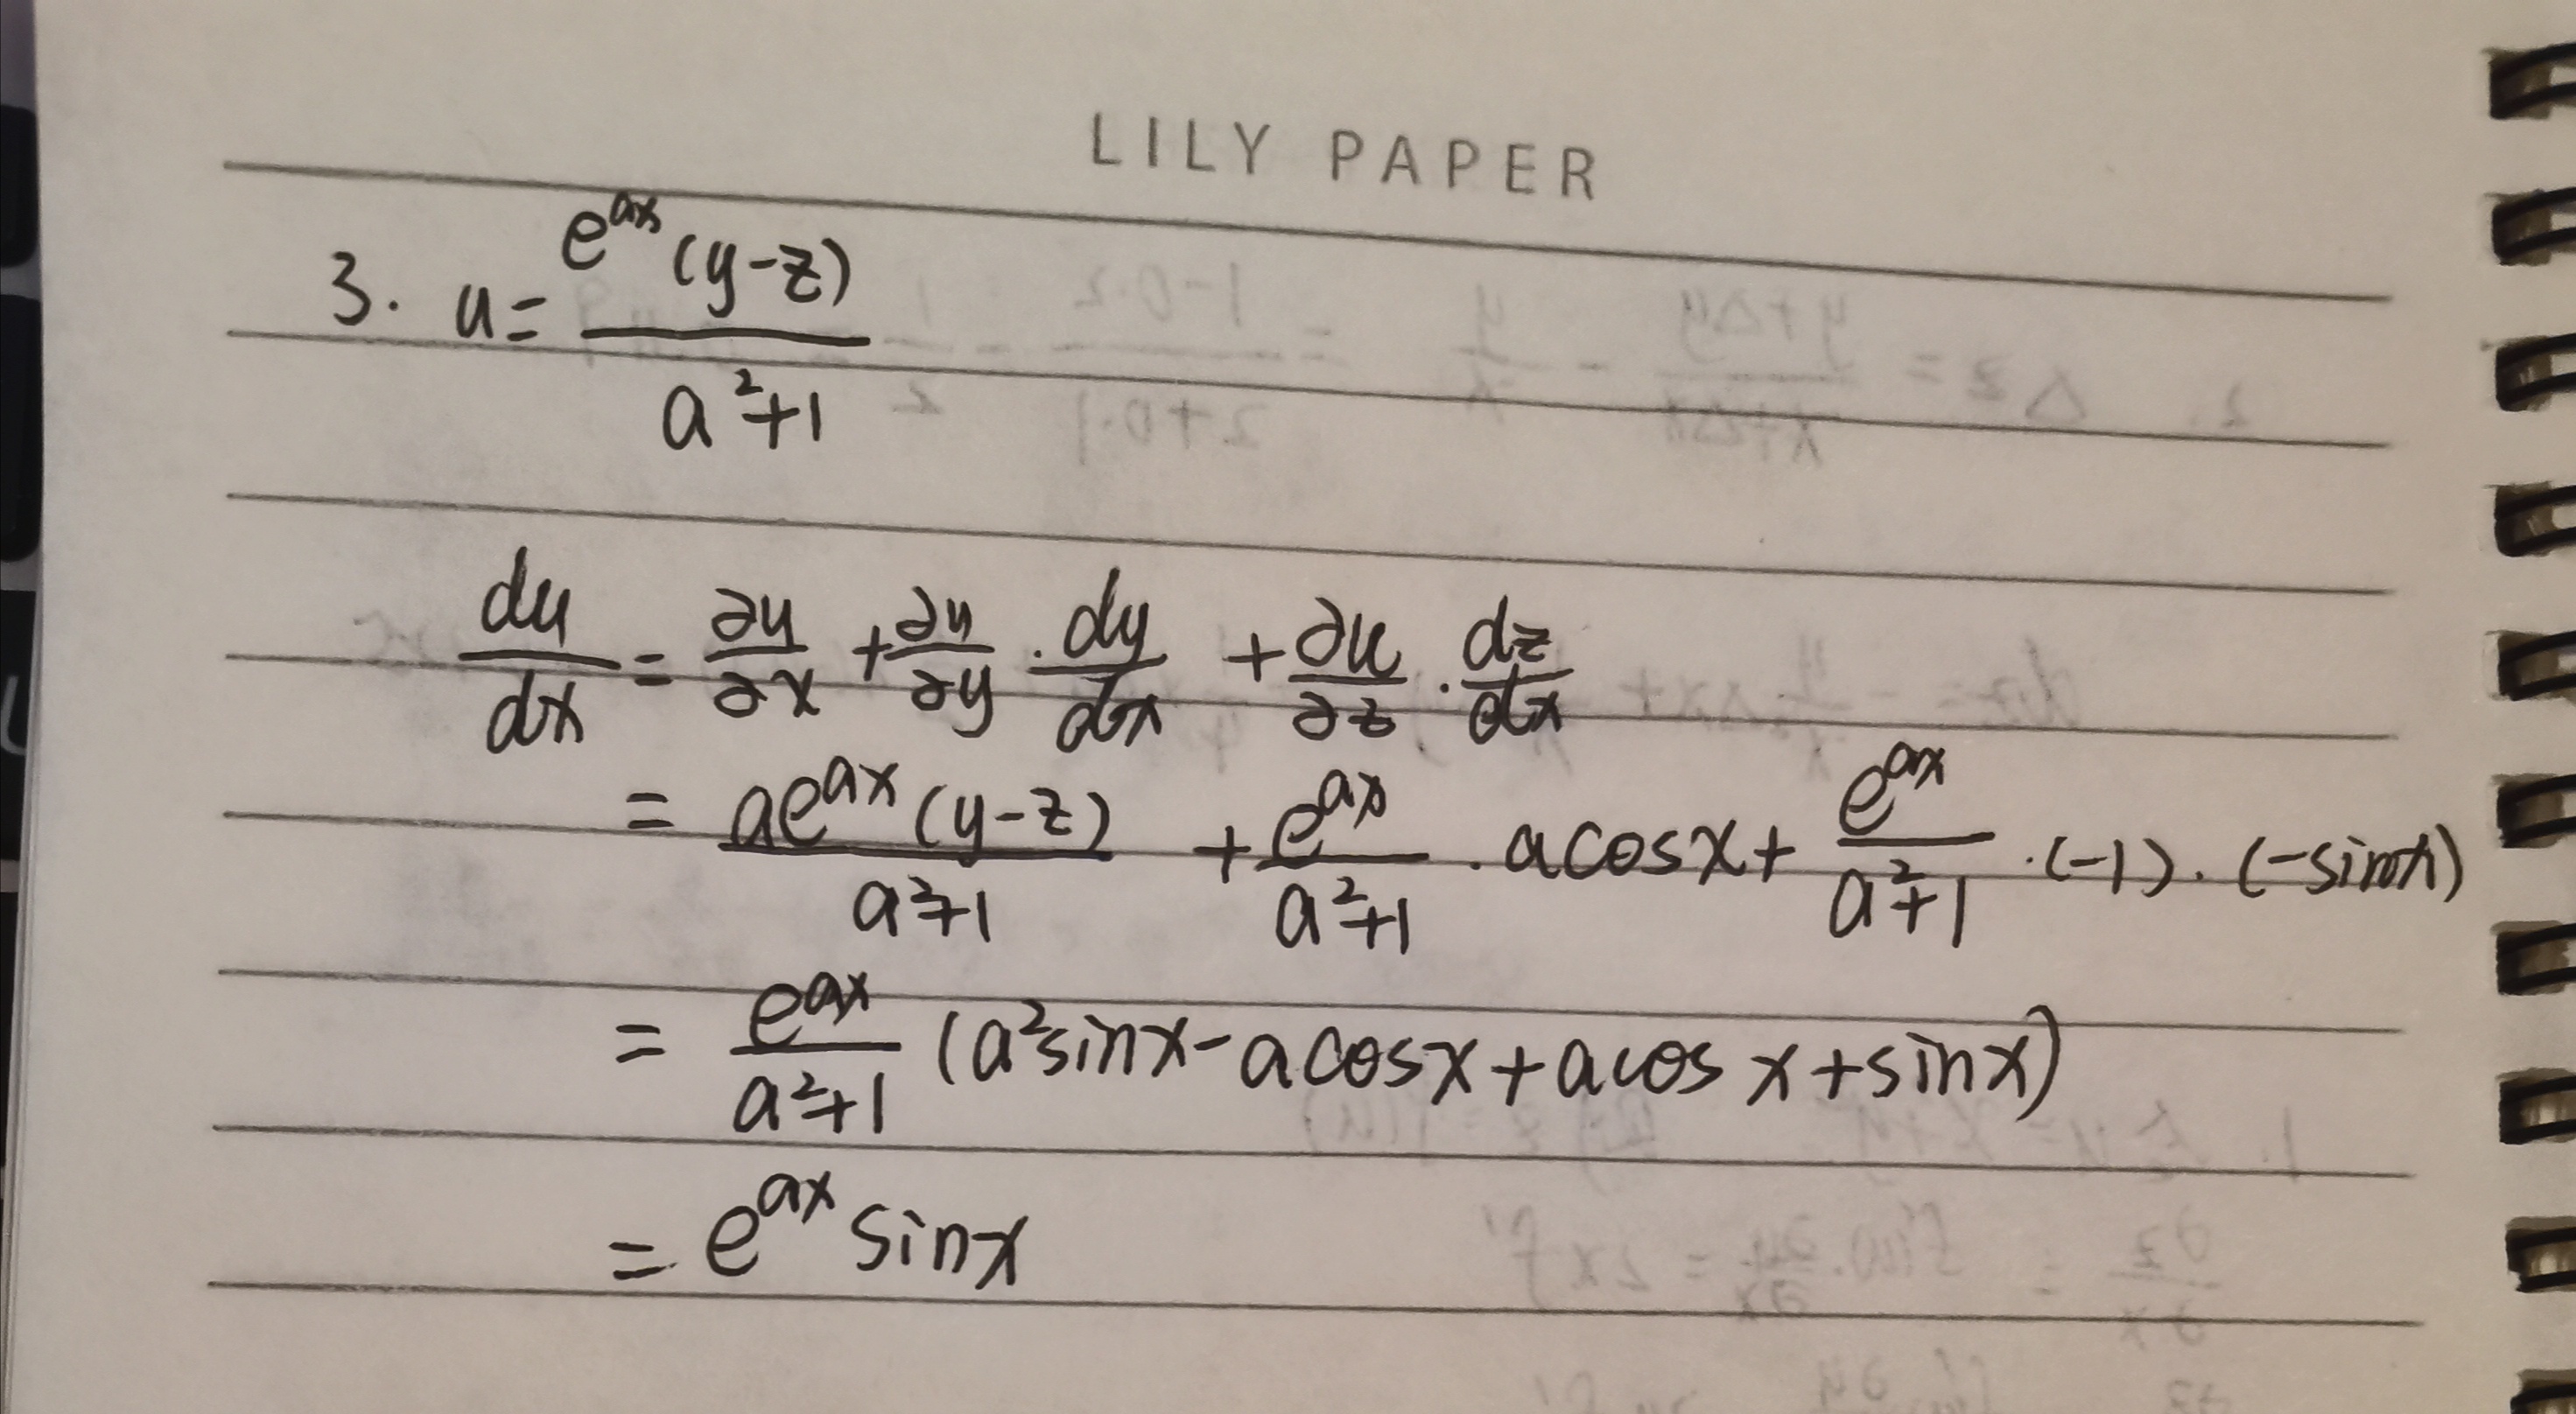 LILY PAPER
3. u = e^{ax}(y-z) / a²+1
du/dx = ∂u/∂x + ∂u/∂y · dy/dx + ∂u/∂z · dz/dx
= ae^{ax}(y-z) / a²+1 + e^{ax} / a²+1 · acosx + e^{ax} / a²+1 · (-1) · (-sinx)
= e^{ax} / a²+1 (a²sinx - acosx + acosx + sinx)
= e^{ax} sinx